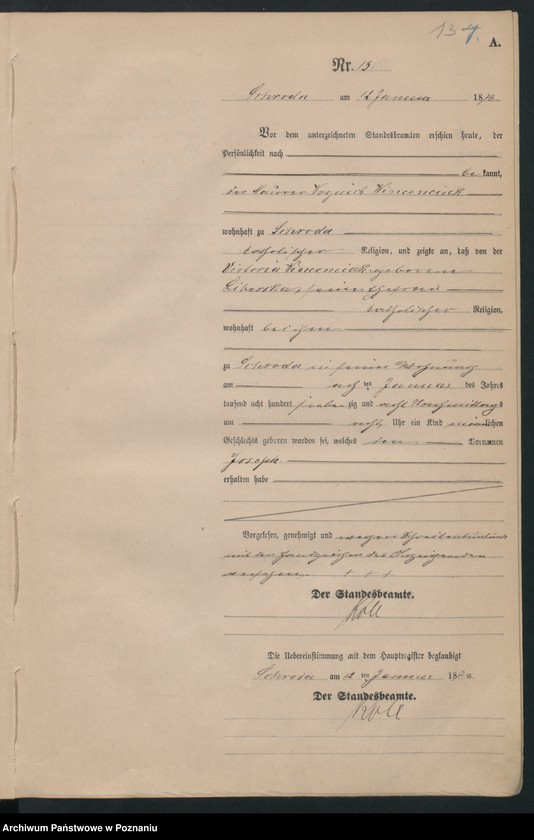 134
A.
Nr. 15.
Schroda am 12 Januar 1878.
Vor dem unterzeichneten Standesbeamten erschien heute, der
Persönlichkeit nach
be kannt,
der Maurer
wohnhaft zu Schroda
katholischer Religion, und zeigte an, daß von der
Victoria geborenen
seiner Ehefrau
katholischer Religion,
wohnhaft bei ihm
zu Schroda in seiner Wohnung
am ten Januar des Jahres
tausend acht hundert sieben zig und acht Nachmittags
um acht Uhr ein Kind männlichen
Geschlechts geboren worden sei, welches den Vornamen
Joseph
erhalten habe
Vorgelesen, genehmigt und wegen Schreibensunkunde
mit den Handzeichen des Anzeigenden
versehen. + + +
Der Standesbeamte.
Die Uebereinstimmung mit dem Hauptregister beglaubigt
Schroda am 12 ten Januar 1878
Der Standesbeamte.
Archiwum Państwowe w Poznaniu